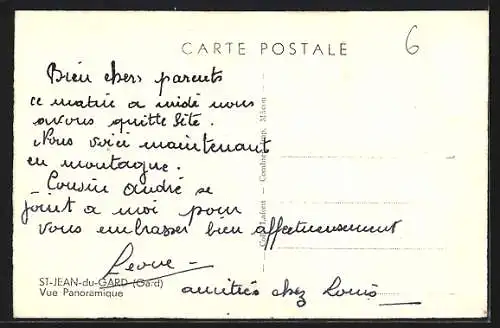 CARTE POSTALE
6
Bien chers parents
ce matin a midi nous
avons quitté Sète.
Nous voici maintenant
en montagne.
Cousin André se
joint a moi pour
vous embrasser bien affectueusement
ST-JEAN-du-GARD (Gard)
Vue Panoramique
amitiés chez Louis